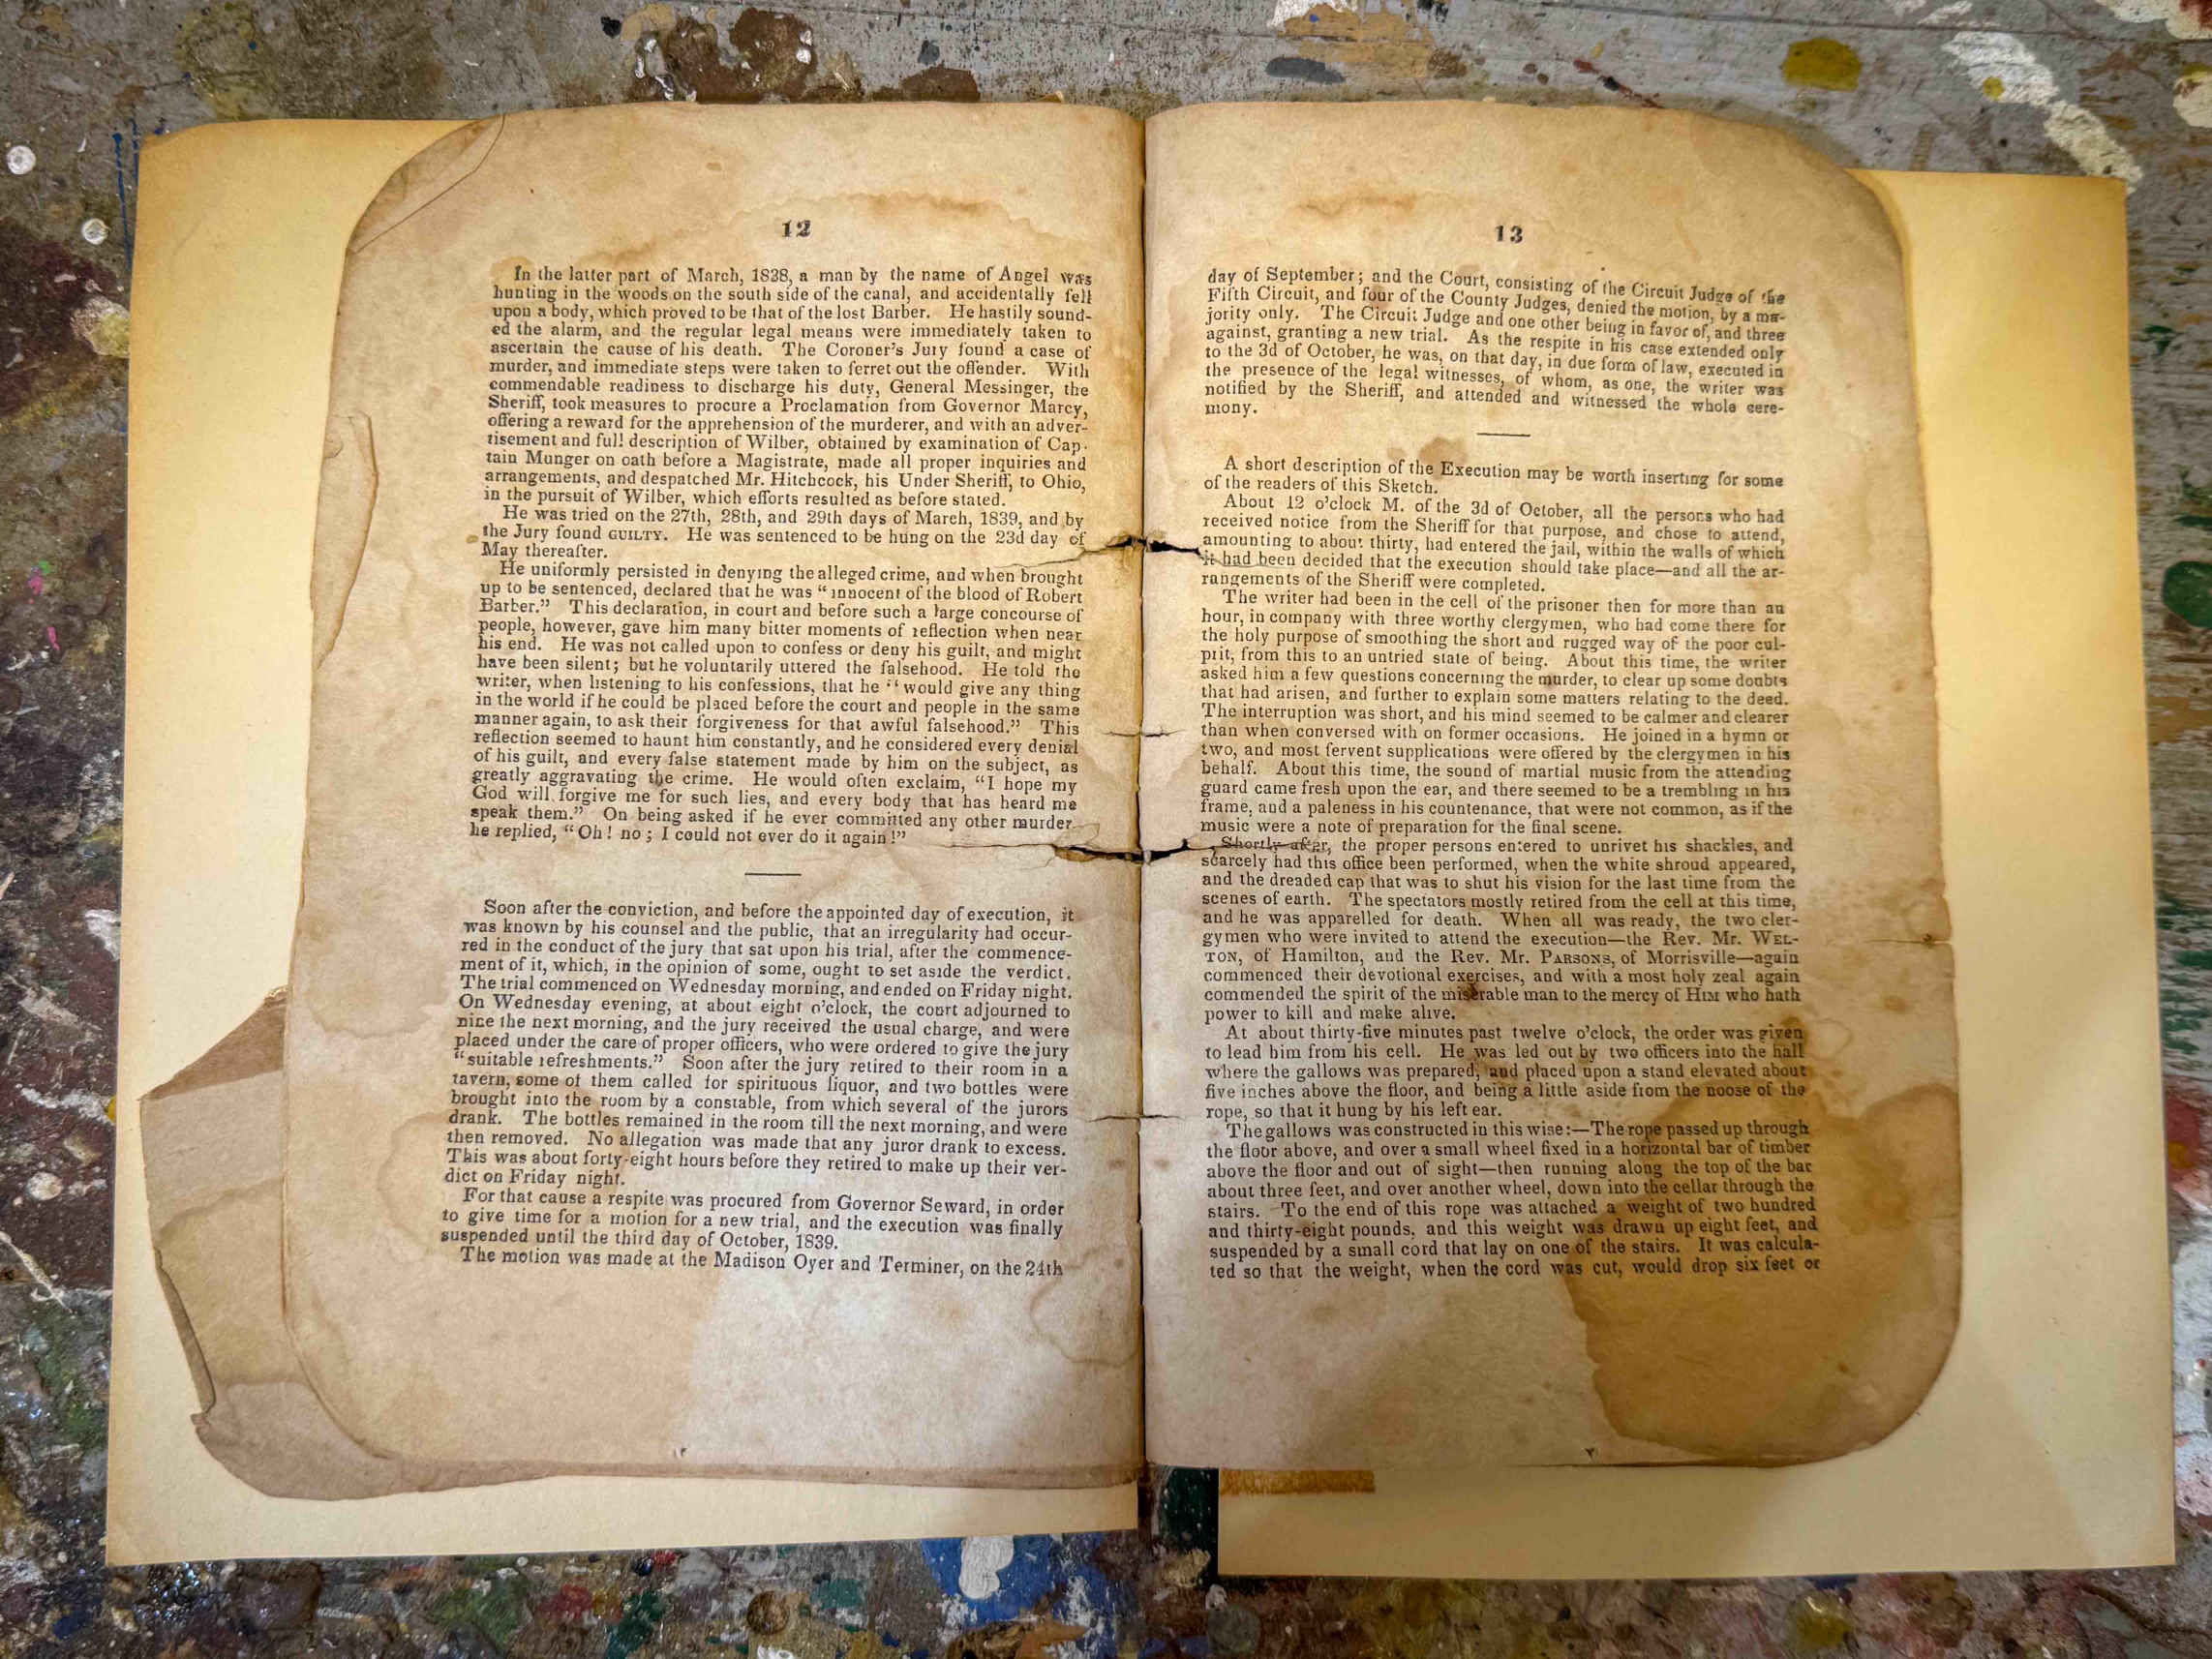 12
In the latter part of March, 1838, a man by the name of Angel was
hunting in the woods on the south side of the canal, and accidentally fell
upon a body, which proved to be that of the lost Barber. He hastily sound-
ed the alarm, and the regular legal means were immediately taken to
ascertain the cause of his death. The Coroner's Jury found a case of
murder, and immediate steps were taken to ferret out the offender. With
commendable readiness to discharge his duty, General Messinger, the
Sheriff, took measures to procure a Proclamation from Governor Marcy,
offering a reward for the apprehension of the murderer, and with an adver-
tisement and full description of Wilber, obtained by examination of Cap-
tain Munger on oath before a Magistrate, made all proper inquiries and
arrangements, and despatched Mr. Hitchcock, his Under Sheriff, to Ohio,
in the pursuit of Wilber, which efforts resulted as before stated.
He was tried on the 27th, 28th, and 29th days of March, 1839, and by
the Jury found GUILTY. He was sentenced to be hung on the 23d day of
May thereafter.
He uniformly persisted in denying the alleged crime, and when brought
up to be sentenced, declared that he was "innocent of the blood of Robert
Barber." This declaration, in court and before such a large concourse of
people, however, gave him many bitter moments of reflection when near
his end. He was not called upon to confess or deny his guilt, and might
have been silent; but he voluntarily uttered the falsehood. He told the
writer, when listening to his confessions, that he "would give any thing
in the world if he could be placed before the court and people in the same
manner again, to ask their forgiveness for that awful falsehood." This
reflection seemed to haunt him constantly, and he considered every denial
of his guilt, and every false statement made by him on the subject, as
greatly aggravating the crime. He would often exclaim, "I hope my
God will forgive me for such lies, and every body that has heard me
speak them." On being asked if he ever committed any other murder
he replied, "Oh! no; I could not ever do it again!"
Soon after the conviction, and before the appointed day of execution, it
was known by his counsel and the public, that an irregularity had occur-
red in the conduct of the jury that sat upon his trial, after the commence-
ment of it, which, in the opinion of some, ought to set aside the verdict.
The trial commenced on Wednesday morning, and ended on Friday night.
On Wednesday evening, at about eight o'clock, the court adjourned to
nine the next morning, and the jury received the usual charge, and were
placed under the care of proper officers, who were ordered to give the jury
"suitable refreshments." Soon after the jury retired to their room in a
tavern, some of them called for spirituous liquor, and two bottles were
brought into the room by a constable, from which several of the jurors
drank. The bottles remained in the room till the next morning, and were
then removed. No allegation was made that any juror drank to excess.
This was about forty-eight hours before they retired to make up their ver-
dict on Friday night.
For that cause a respite was procured from Governor Seward, in order
to give time for a motion for a new trial, and the execution was finally
suspended until the third day of October, 1839.
The motion was made at the Madison Oyer and Terminer, on the 24th
13
day of September; and the Court, consisting of the Circuit Judge of the
Fifth Circuit, and four of the County Judges, denied the motion, by a ma-
jority only. The Circuit Judge and one other being in favor of, and three
against, granting a new trial. As the respite in his case extended only
to the 3d of October, he was, on that day, in due form of law, executed in
the presence of the legal witnesses, of whom, as one, the writer was
notified by the Sheriff, and attended and witnessed the whole cere-
mony.
A short description of the Execution may be worth inserting for some
of the readers of this Sketch.
About 12 o'clock M. of the 3d of October, all the persons who had
received notice from the Sheriff for that purpose, and chose to attend,
amounting to about thirty, had entered the jail, within the walls of which
it had been decided that the execution should take place—and all the ar-
rangements of the Sheriff were completed.
The writer had been in the cell of the prisoner then for more than an
hour, in company with three worthy clergymen, who had come there for
the holy purpose of smoothing the short and rugged way of the poor cul-
prit, from this to an untried state of being. About this time, the writer
asked him a few questions concerning the murder, to clear up some doubts
that had arisen, and further to explain some matters relating to the deed.
The interruption was short, and his mind seemed to be calmer and clearer
than when conversed with on former occasions. He joined in a hymn or
two, and most fervent supplications were offered by the clergymen in his
behalf. About this time, the sound of martial music from the attending
guard came fresh upon the ear, and there seemed to be a trembling in his
frame, and a paleness in his countenance, that were not common, as if the
music were a note of preparation for the final scene.
Shortly after, the proper persons entered to unrivet his shackles, and
scarcely had this office been performed, when the white shroud appeared,
and the dreaded cap that was to shut his vision for the last time from the
scenes of earth. The spectators mostly retired from the cell at this time,
and he was apparelled for death. When all was ready, the two cler-
gymen who were invited to attend the execution—the Rev. Mr. WEL-
TON, of Hamilton, and the Rev. Mr. PARSONS, of Morrisville—again
commenced their devotional exercises, and with a most holy zeal again
commended the spirit of the miserable man to the mercy of HIM who hath
power to kill and make alive.
At about thirty-five minutes past twelve o'clock, the order was given
to lead him from his cell. He was led out by two officers into the hall
where the gallows was prepared, and placed upon a stand elevated about
five inches above the floor, and being a little aside from the noose of the
rope, so that it hung by his left ear.
The gallows was constructed in this wise:—The rope passed up through
the floor above, and over a small wheel fixed in a horizontal bar of timber
above the floor and out of sight—then running along the top of the bar
about three feet, and over another wheel, down into the cellar through the
stairs. To the end of this rope was attached a weight of two hundred
and thirty-eight pounds, and this weight was drawn up eight feet, and
suspended by a small cord that lay on one of the stairs. It was calcula-
ted so that the weight, when the cord was cut, would drop six feet or